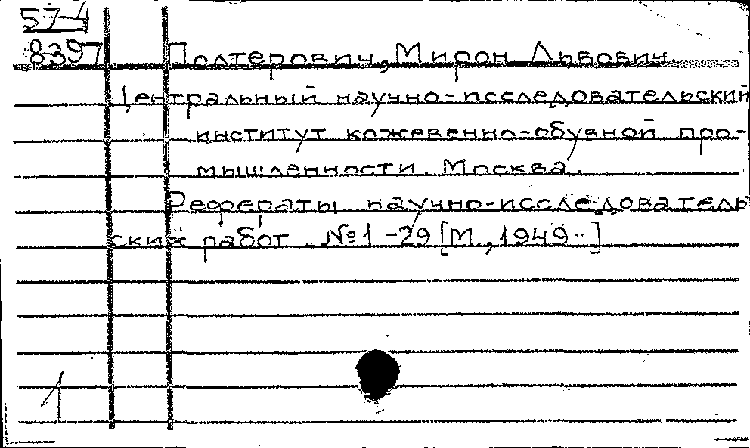 57-4
8397 Полтерович, Мирон Львович
Центральный научно-исследовательский
институт кожевенно-обувной про-
мышленности. Москва.
Рефераты научно-исследователь
ских работ. №1-29 [М., 1949..]
1